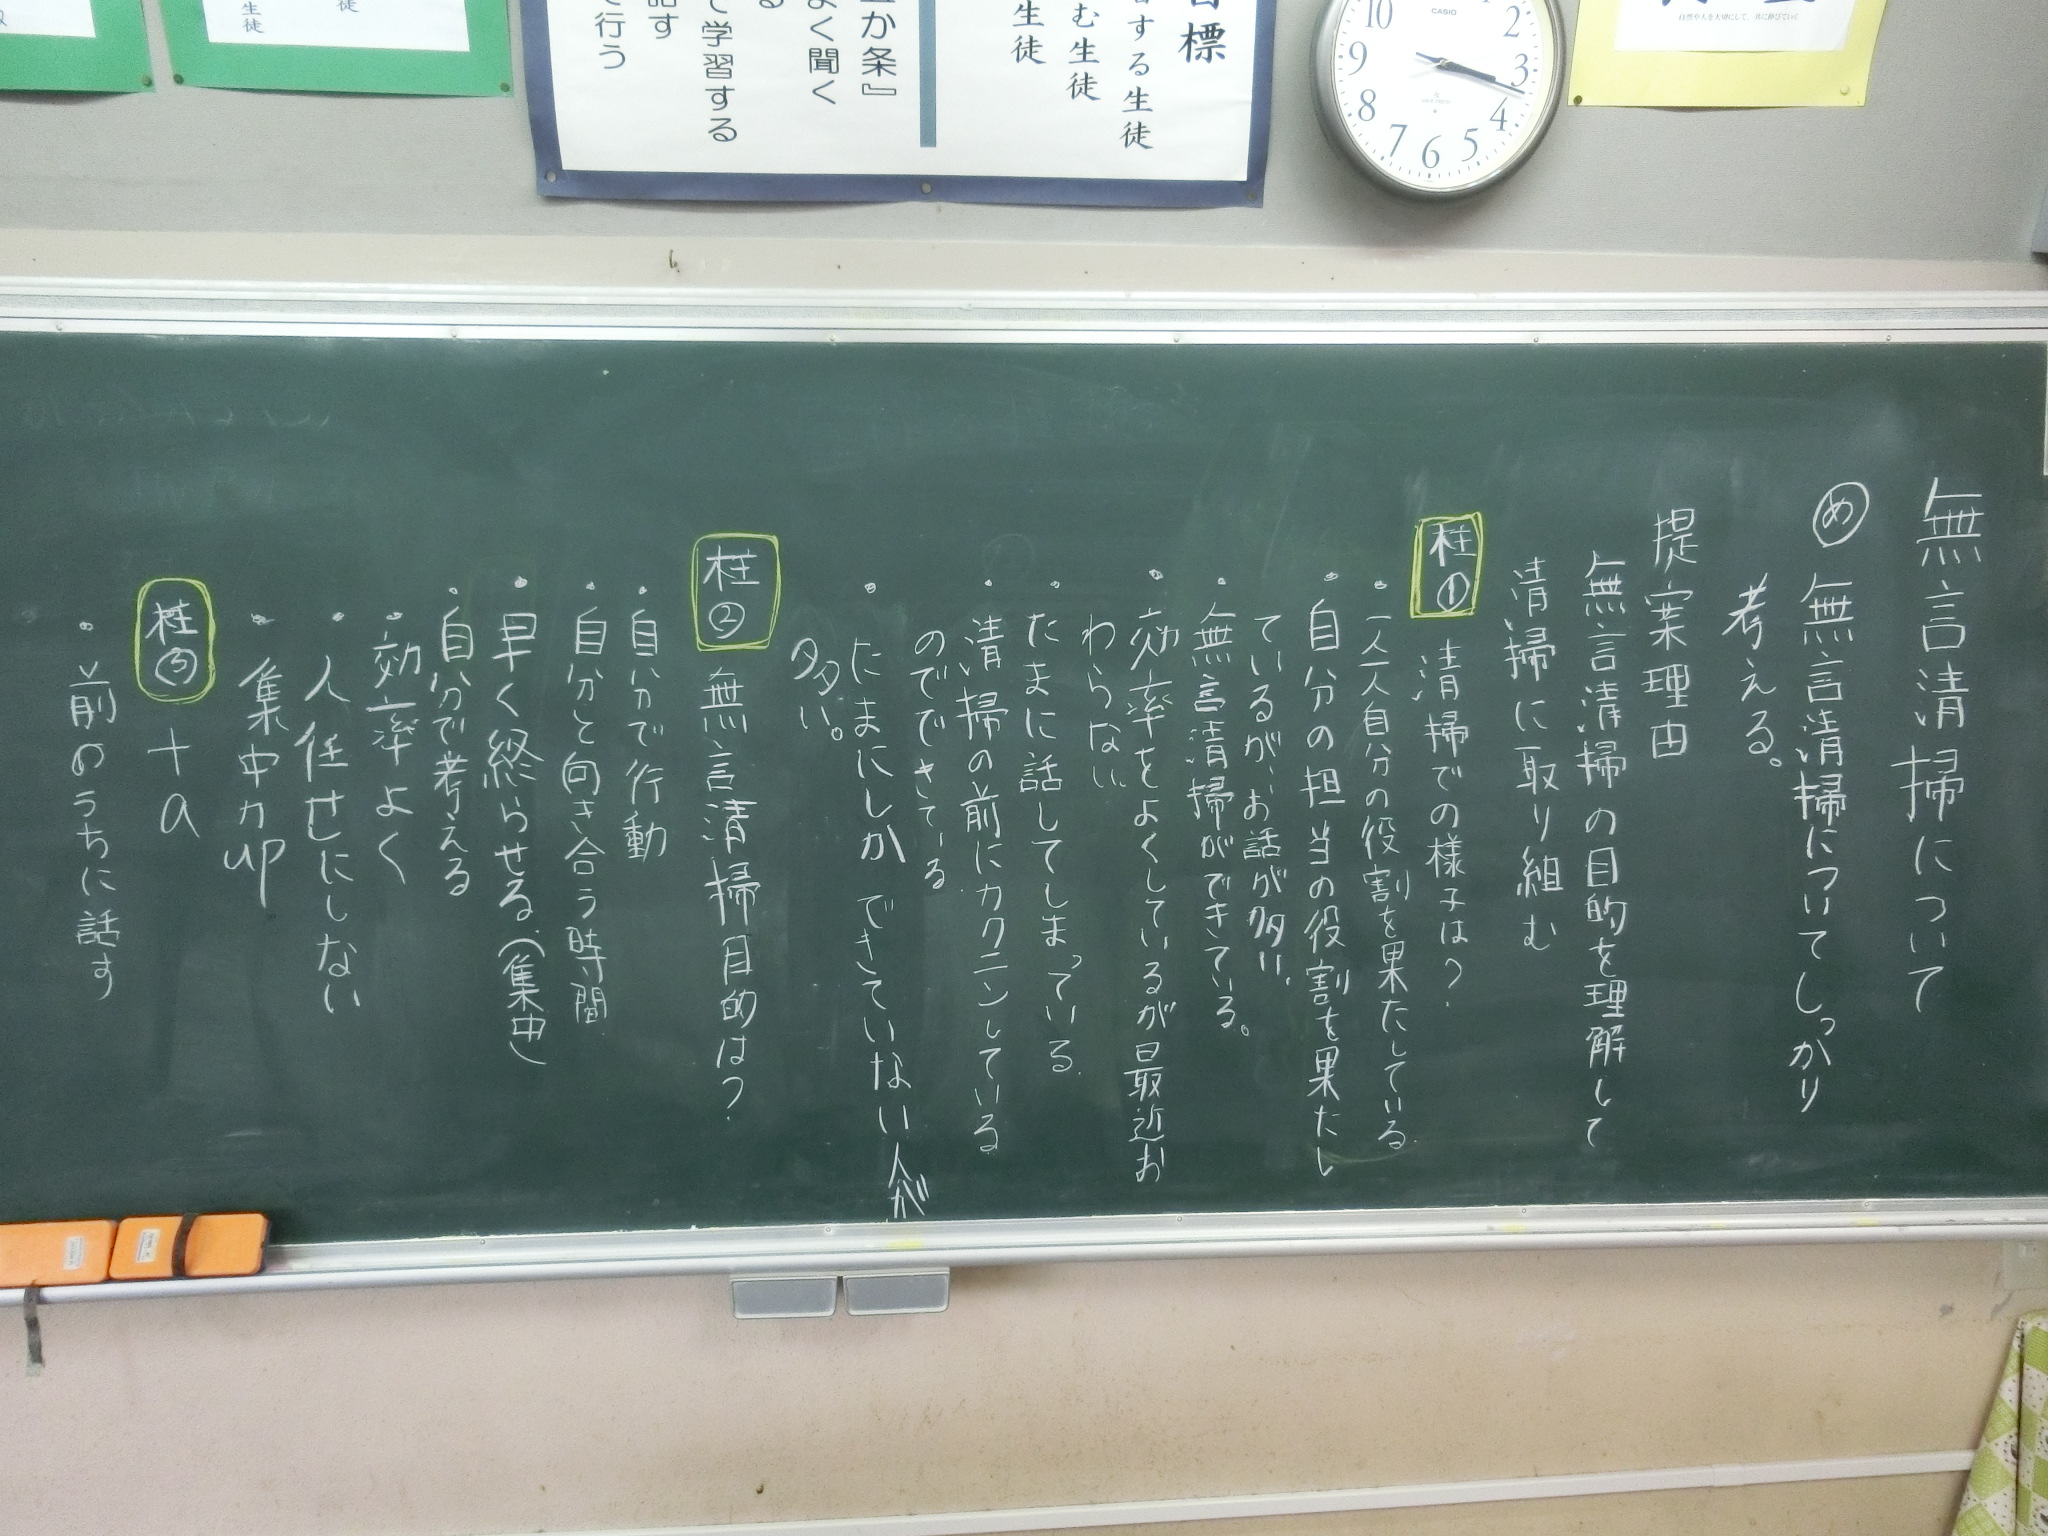 目標
する生徒
む生徒
生徒
か条』
よく聞く
る
て学習する
話す
で行う
生徒
徒
自然や人を大切にして、共に伸びていく
CASIO
10
9
8
7
6
5
4
3
2
無言清掃について
め 無言清掃についてしっかり
考える。
提案理由
無言清掃の目的を理解して
清掃に取り組む
柱① 清掃での様子は?
・一人一人自分の役割を果たしている
・自分の担当の役割を果たし
ているが、お話が多い。
・無言清掃ができている。
・効率をよくしているが最近お
わらない
・たまに話してしまっている
・清掃の前にカクニンしている
のでできている
・たまにしかできていない人が
多い。
柱② 無言清掃目的は?
・自分で行動
・自分と向き合う時間
・早く終らせる(集中)
・自分で考える
・効率よく
・人任せにしない
・集中力up
柱③ +a
・前のうちに話す